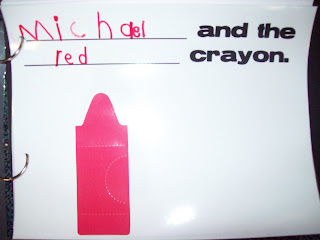 Michael and the
red crayon.